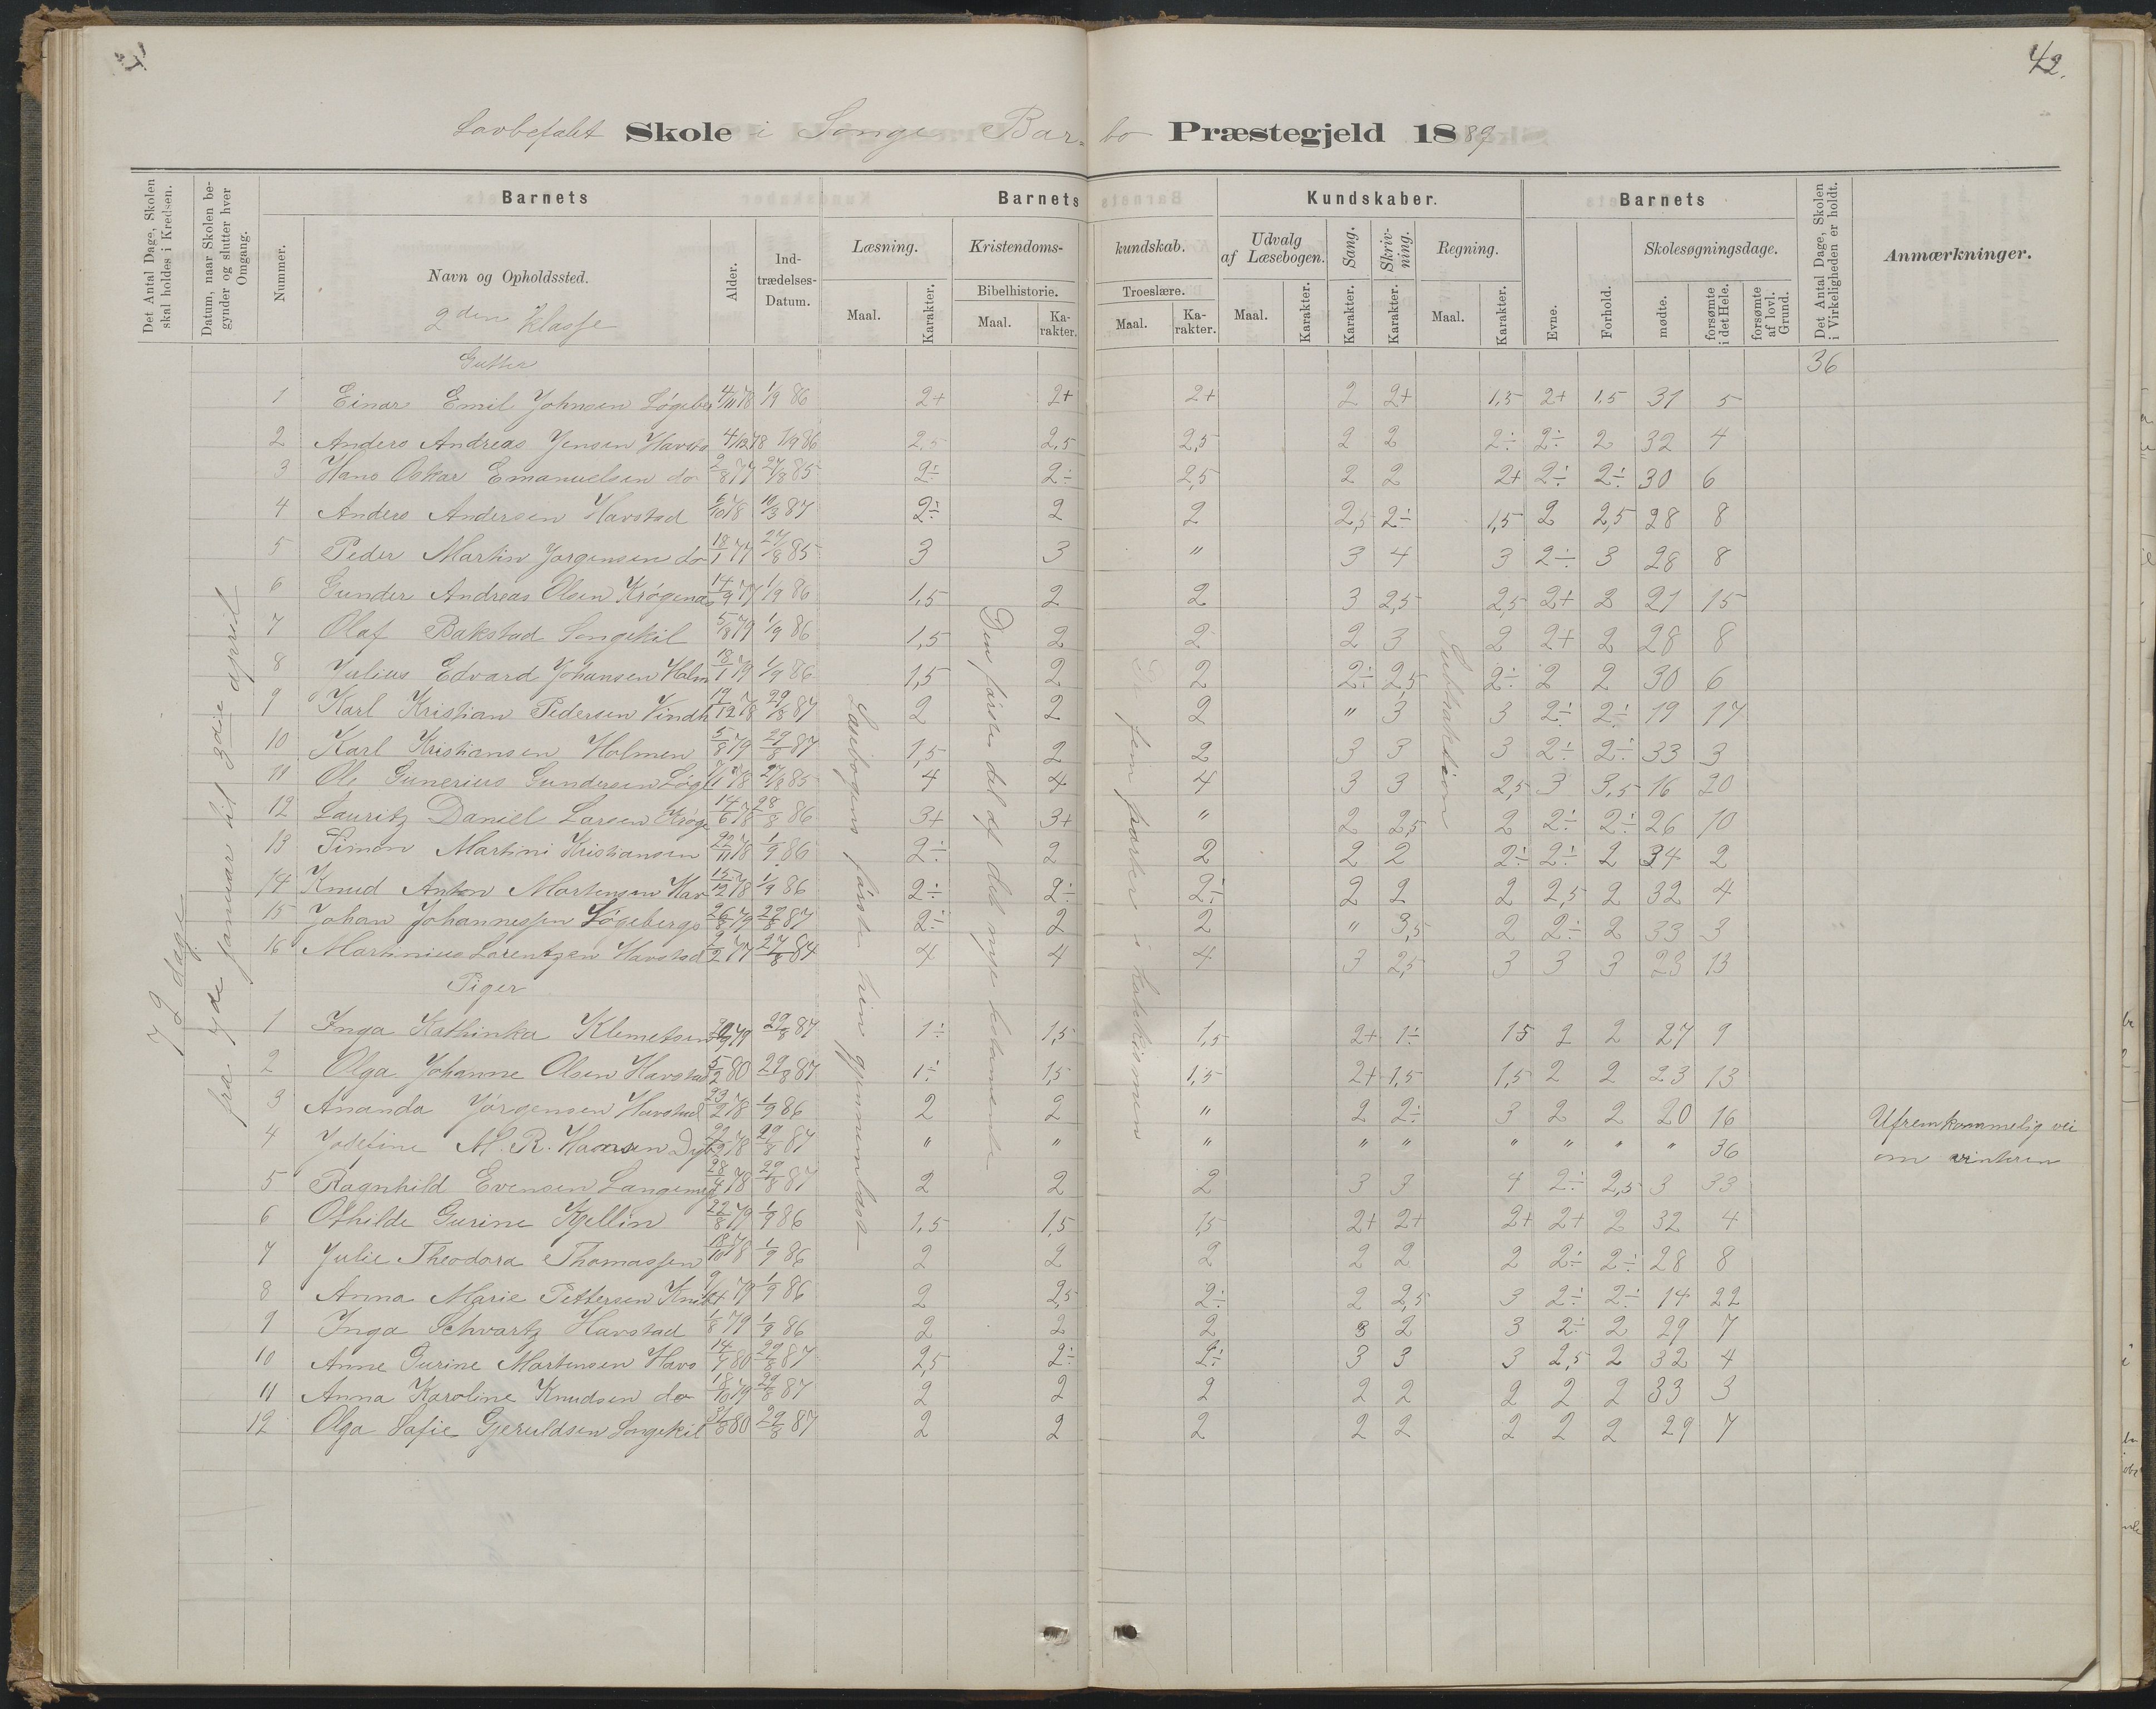 42.
Lovbefalet Skole i Songe Barbo Præstegjeld 1889
Det Antal Dage, Skolen skal holdes i Kredsen.
Datum, naar Skolen begynder og slutter hver Omgang.
Nummer.
Barnets
Navn og Opholdssted.
2den Klasse
Alder.
Indtrædelses-Datum.
Barnets Kundskaber.
Læsning. Maal. Karakter.
Kristendomskundskab.
Bibelhistorie. Maal. Karakter.
Troeslære. Maal. Karakter.
Udvalg af Læsebogen. Maal. Karakter.
Sang. Karakter.
Skrivning. Karakter.
Regning. Maal. Karakter.
Barnets
Evne. Forhold.
Skolesøgningsdage.
mødte. forsømte i det Hele. forsømte af lovl. Grund.
Det Antal Dage, Skolen i Virkeligheden er holdt.
Anmærkninger.
72 dage
fra 7de januar til 3die april
Læsebogens første trin gjennemlæst
Den første del af det nye testamente
De fem parter i katekismen
Subtraktion
Gutter 36
1 Einar Emil Johnsen Løgeber 4/11 78 1/9 86 2+ 2+ 2+ 2 2+ 1,5 2+ 1,5 31 5
2 Anders Andreas Jensen Havsta 4/12 78 1/9 86 2,5 2,5 2,5 2 2 2÷ 2÷ 2 32 4
3 Hans Oskar Emanuelsen do 2/8 77 27/8 85 2÷ 2÷ 2,5 2 2 2+ 2÷ 2÷ 30 6
4 Anders Andersen Havstad 6/10 78 10/3 87 2÷ 2 2 2,5 2÷ 1,5 2 2,5 28 8
5 Peder Martin Jørgensen do 18/1 77 27/8 85 3 3 " 3 4 3 2÷ 3 28 8
6 Gunder Andreas Olsen Krøgenæs 14/9 79 1/9 86 1,5 2 2 3 2,5 2,5 2+ 2 21 15
7 Olaf Bakstad Songekil 5/8 79 1/9 86 1,5 2 2 2 3 2 2+ 2 28 8
8 Julius Edvard Johansen Holm 18/1 79 1/9 86 1,5 2 2 2÷ 2,5 2÷ 2 2 30 6
9 Karl Kristian Pedersen Vindh 12/12 78 29/8 87 2 2 2 " 3 3 2÷ 2÷ 19 17
10 Karl Kristiansen Holmen 5/8 79 29/8 87 1,5 2 2 3 3 3 2÷ 2÷ 33 3
11 Ole Gunerius Gundersen Løg 78 27/8 85 4 4 4 3 3 2,5 3 3,5 16 20
12 Lauritz Daniel Larsen Krøge 14/6 78 28/8 86 3+ 3+ " 2 2,5 2 2÷ 2÷ 26 10
13 Simon Martini Kristiansen 22/11 78 1/9 86 2÷ 2 2 2 2 2÷ 2÷ 2 34 2
14 Knud Anton Mortensen Hav 15/12 78 1/9 86 2÷ 2÷ 2÷ 2 2 2 2,5 2 32 4
15 Johan Johannessen Løgebergs 26/8 79 29/8 87 2÷ 2 2 " 3,5 2 2÷ 2 33 3
16 Martinius Lorentzen Havstad 9/2 77 27/8 84 4 4 4 3 2,5 3 3 3 23 13
Piger
1 Inga Kathinka Klemetsen 79 29/8 87 1÷ 1,5 1,5 2+ 1÷ 15 2 2 27 9
2 Olga Johanne Olsen Havstad 5/2 80 29/8 87 1÷ 1,5 1,5 2+ 1,5 1,5 2 2 23 13
3 Ananda Jørgensen Havstad 23/2 78 1/9 86 2 2 " 2 2÷ 3 2 2 20 16
4 Josefine M. R. Hansen 78 29/8 87 " " " " " " " " " 36 Ufremkommelig vei om vinteren
5 Ragnhild Evensen Langemyr 28/4 78 29/8 87 2 2 2 3 3 4 2÷ 2,5 3 33
6 Othilde Gurine Kjellin 22/8 79 1/9 86 1,5 1,5 15 2+ 2+ 2+ 2+ 2 32 4
7 Julie Theodora Thomassen 18/10 78 1/9 86 2 2 2 2 2 2 2÷ 2÷ 28 8
8 Anna Marie Pettersen 79 1/9 86 2 2,5 2÷ 2 2,5 3 2÷ 2÷ 14 22
9 Inga Schvartz Havstad 1/8 79 1/9 86 2 2 2 3 2 3 2÷ 2 29 7
10 Anne Gurine Mortensen Havs 14/7 80 29/8 87 2,5 2÷ 2÷ 3 3 3 2,5 2 32 4
11 Anna Karoline Knudsen do 18/10 79 29/8 87 2 2 2 2 2 2 2 2 33 3
12 Olga Sofie Gjeruldsen Songekil 80 29/8 87 2 2 2 2 2 2 2 2 29 7